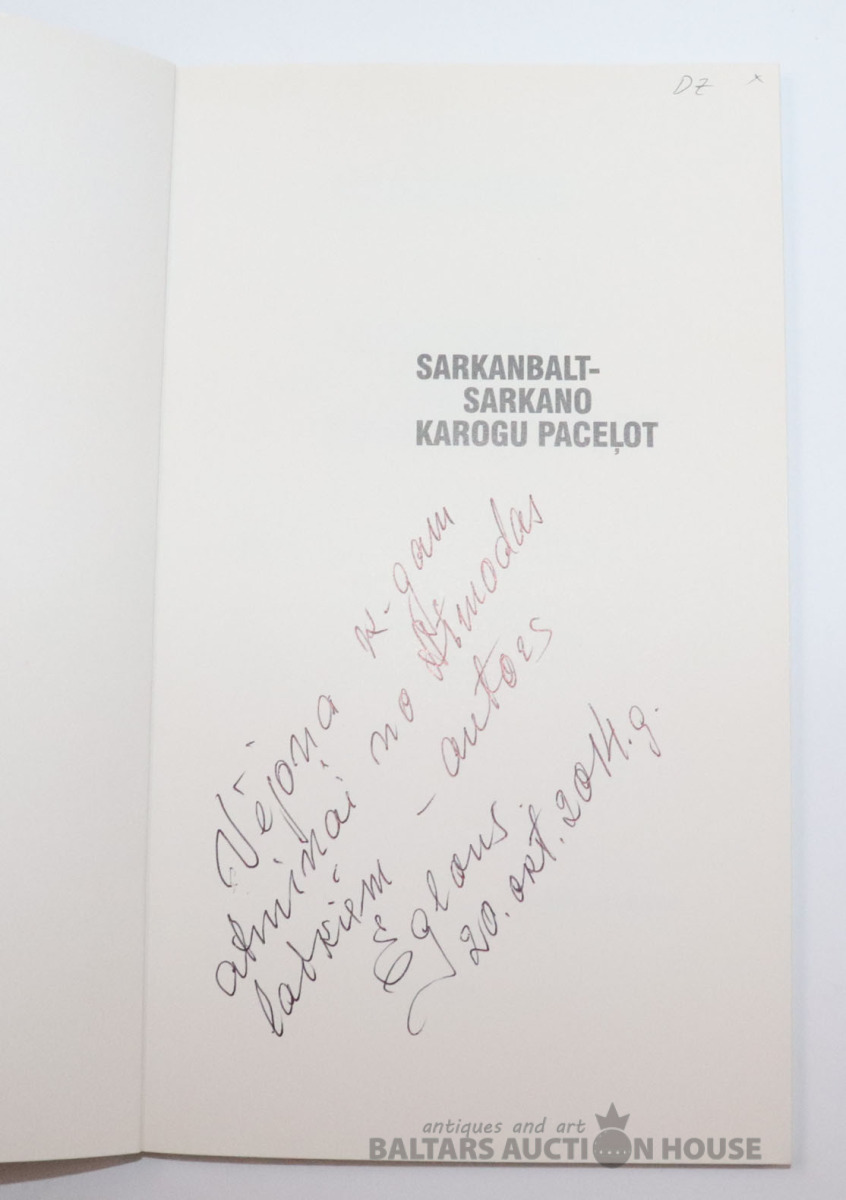 DZ x
SARKANBALT-
SARKANO
KAROGU PACEĻOT
Vējona k-gam
atmiņai no Atmodas
laikiem - autors
Eglons.
20. okt. 2014. g.
antiques and art
BALTARS AUCTION HOUSE